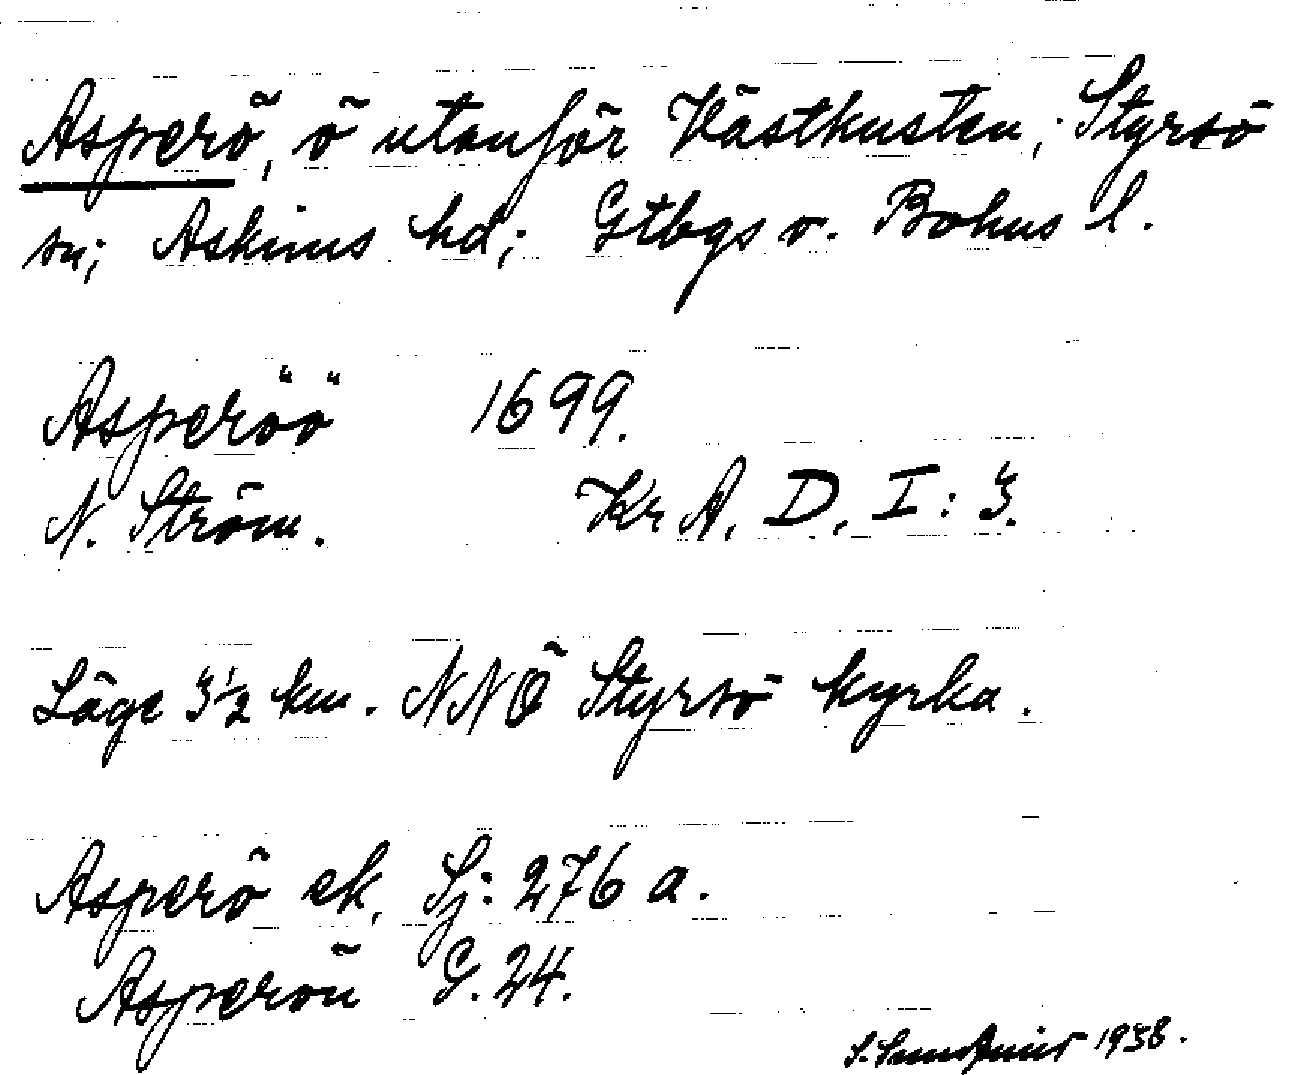 Asperö, ö utanför Västkusten; Styrsö
sn; Askims hd; Gtbgs o. Bohus l.
Asperöö 1699.
N. Ström. Kr A. D. I: 3.
Läge 3 1/2 km. NNÖ Styrsö kyrka.
Asperö ek. Sj: 276 a.
Asperön G. 24.
S. 1938.